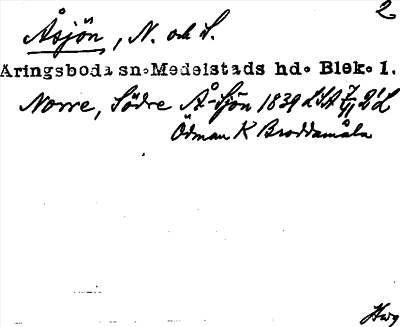 2
Åsjön, N. och S.
Åringsboda sn. Medelstads hd. Blek. l.
Norre, Södre Å-Sjön 1839 LSA
Ödman K Broddamåla
Hwg